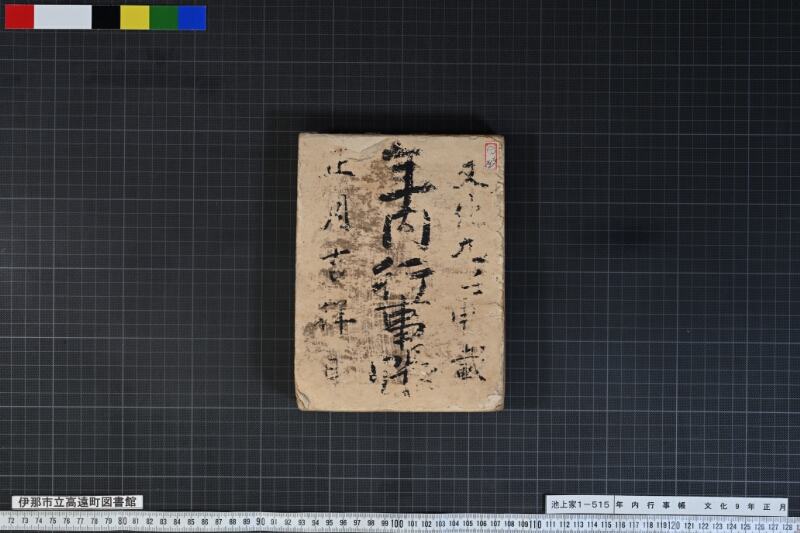 文化九壬申歳
年内行事帳
正月吉祥日
伊那市立高遠町図書館
池上家1-515 年内行事帳 文化9年正月
72 73 74 75 76 77 78 79 80 81 82 83 84 85 86 87 88 89 90 91 92 93 94 95 96 97 98 99 100 101 102 103 104 105 106 107 108 109 110 111 112 113 114 115 116 117 118 119 120 121 122 123 124 125 126 127 128